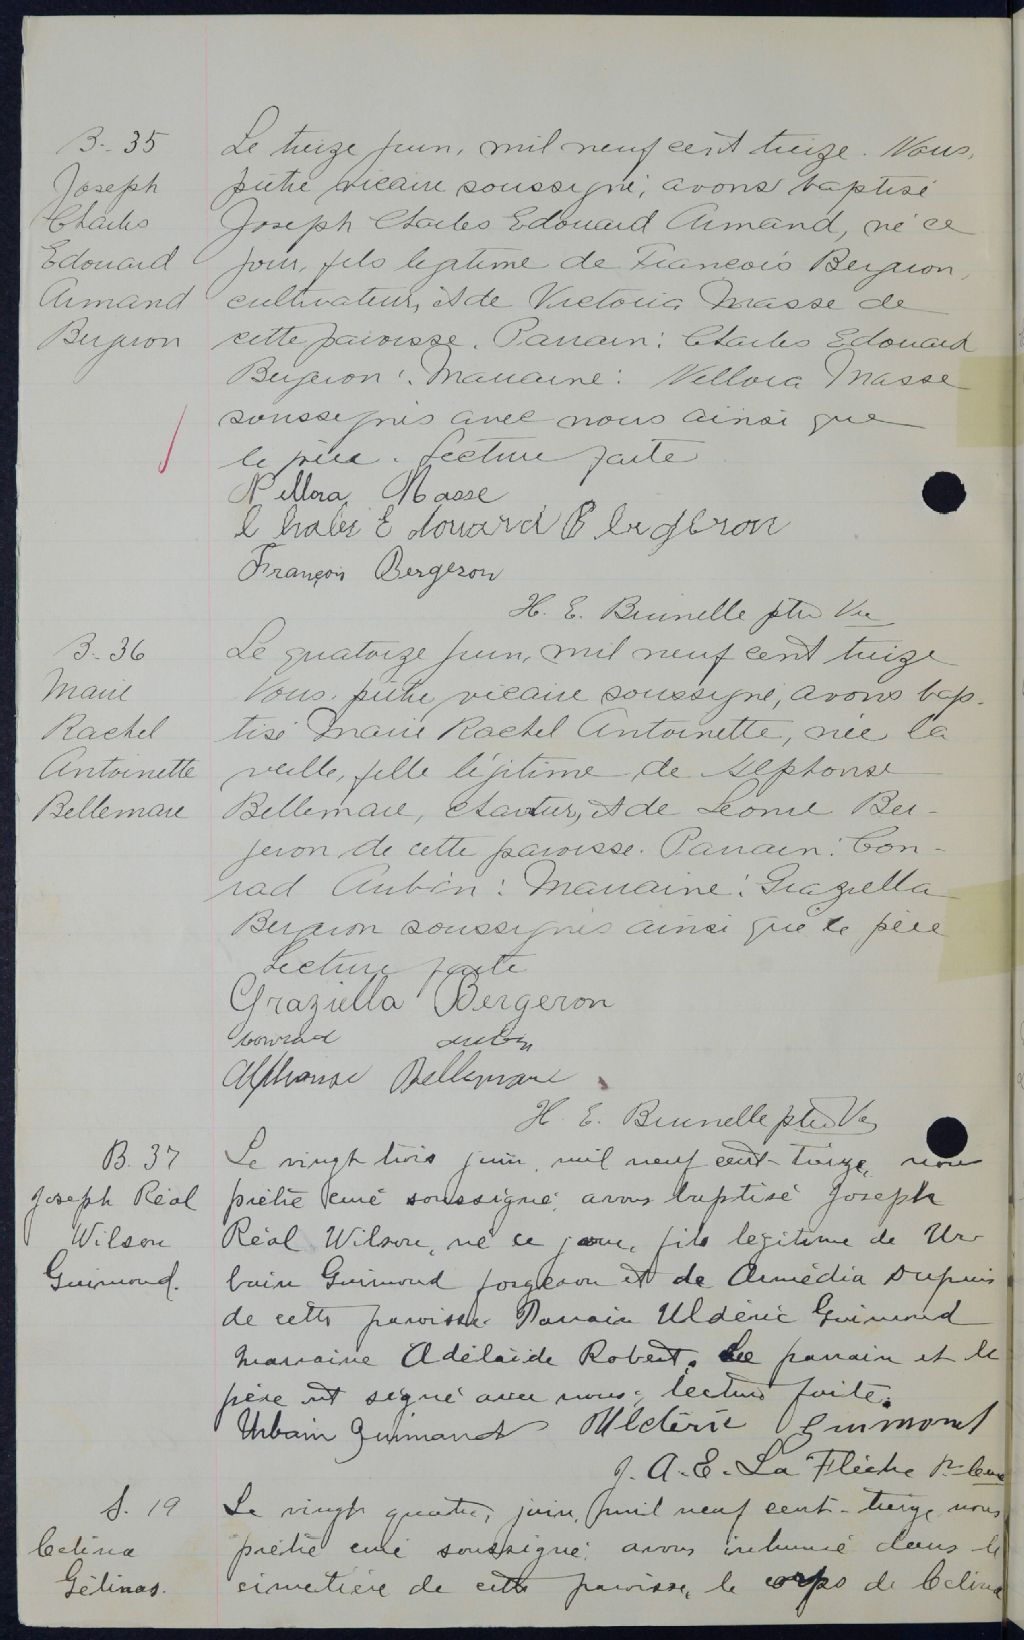 B. 35
Joseph
Charles
Edouard
Armand
Bergeron
Le treize juin, mil neuf cent treize. Nous,
prêtre vicaire soussigné, avons baptisé
Joseph Charles Edouard Armand, né ce
jour, fils légitime de François Bergeron,
cultivateur, et de Victoria Masse de
cette paroisse. Parrain: Charles Edouard
Bergeron: Marraine: Nellora Masse
soussignés avec nous ainsi que
le père. Lecture faite
Nellora Masse
Charles Edouard Bergeron
François Bergeron
H. E. Brunelle ptre Vic
B. 36
Marie
Rachel
Antoinette
Bellemare
Le quatorze juin, mil neuf cent treize
Nous, prêtre vicaire soussigné, avons bap-
tisé Marie Rachel Antoinette, née la
veille, fille légitime de Alphonse
Bellemare, et de Léonie Ber-
geron de cette paroisse. Parrain: Con-
rad Aubin: Marraine: Graziella
Bergeron soussignés ainsi que le père
Lecture faite
Graziella Bergeron
Conrad Aubin
Alphonse Bellemare
H. E. Brunelle ptre Vic
B. 37
Joseph Réal
Wilson
Guimond.
Le vingt trois juin, mil neuf cent-treize, nous
prêtre curé soussigné, avons baptisé Joseph
Réal Wilson, né ce jour, fils légitime de Ur-
bain Guimond forgeron et de Armédia Dupuis
de cette paroisse. Parrain Uldéric Guimond
marraine Adélaïde Robert. Le parrain et le
père ont signé avec nous; lecture faite.
Urbain Guimond Uldéric Guimond
J. A. E. La Flèche Ptre Curé
S. 19
Célina
Gélinas.
Le vingt quatre, juin, mil neuf cent-treize, nous
prêtre curé soussigné, avons inhumé dans le
cimetière de cette paroisse, le corps de Célina